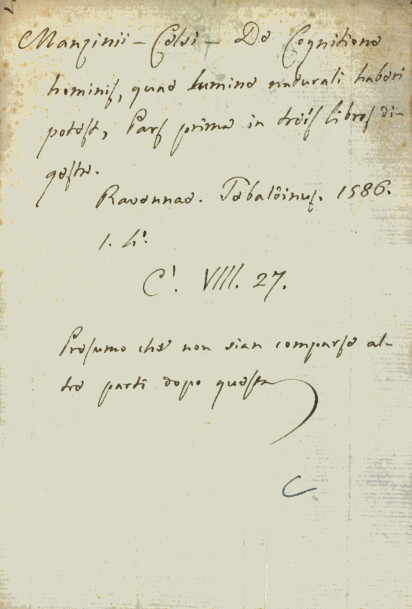 Manzinii - Celsi - De Cognitione
hominis, quae lumine naturali haberi
potest, Pars prima in treis libros di-
gesta.
Ravennae. Tebaldinus. 1586.
1. 4°.
C¹. VIII. 27.
Presumo che non sian comparse al-
tre parti dopo questa
C.